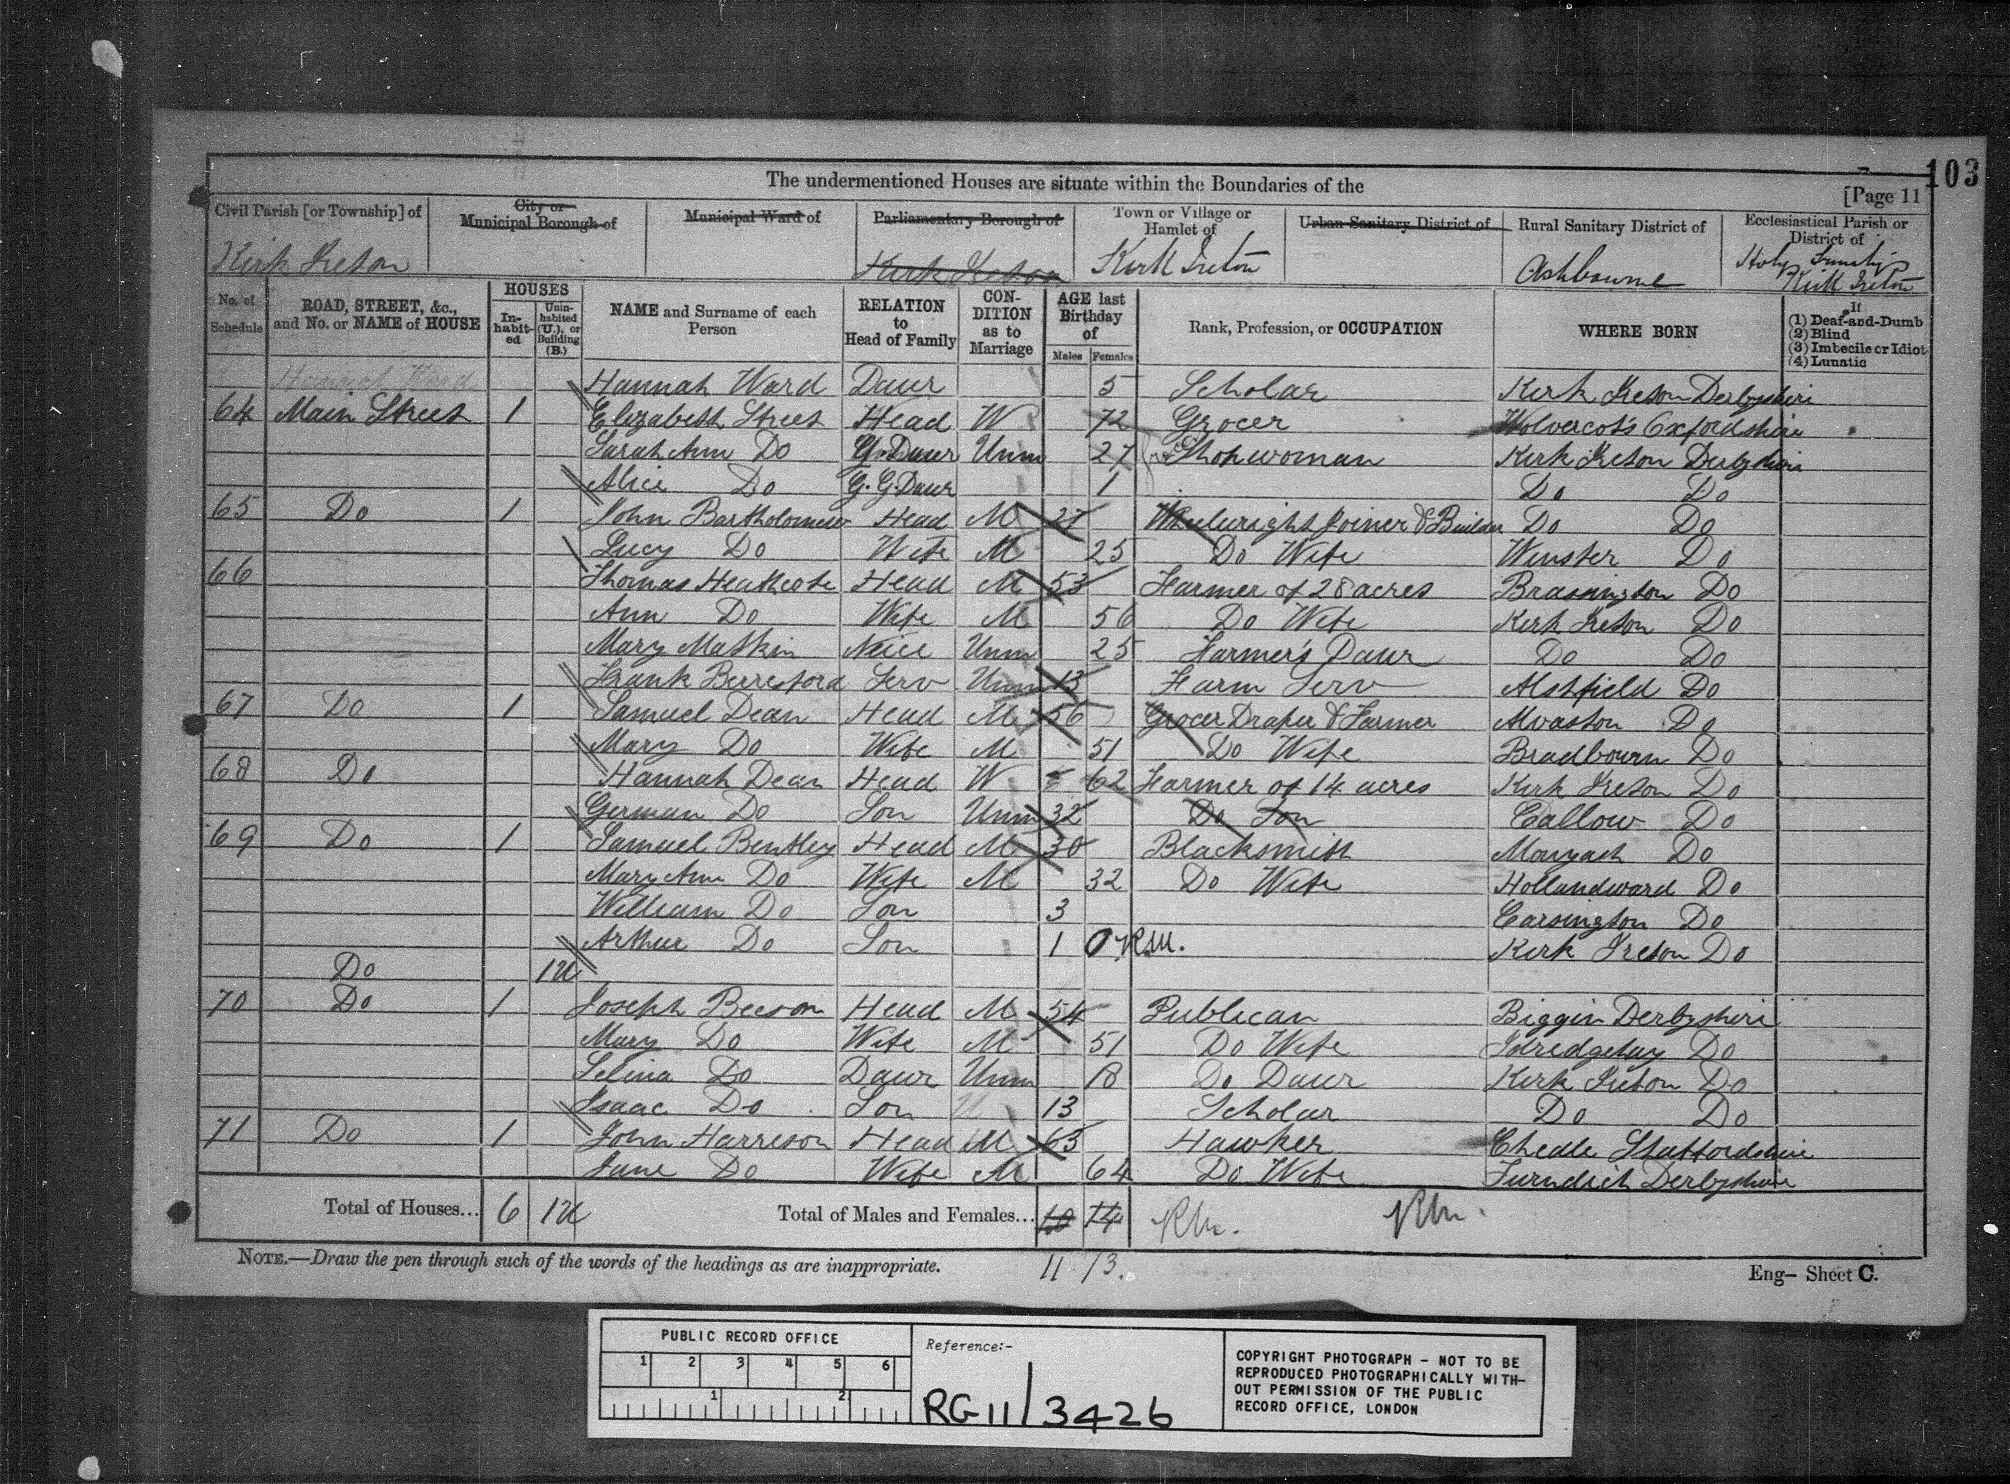 103
The undermentioned Houses are situate within the Boundaries of the
[Page 11
Civil Parish [or Township] of
City or Municipal Borough of
Municipal Ward of
Parliamentary Borough of
Town or Village or Hamlet of
Urban Sanitary District of
Rural Sanitary District of
Ecclesiastical Parish or District of
Kirk Ireton
Kirk Ireton
Kirk Ireton
Ashbourne
Holy Kirk Ireton
No. of Schedule
ROAD, STREET, &c., and No. or NAME of HOUSE
HOUSES
In-habit-ed
Unin-habited (U.), or Building (B.)
NAME and Surname of each Person
RELATION to Head of Family
CON-DITION as to Marriage
AGE last Birthday of
Males
Females
Rank, Profession, or OCCUPATION
WHERE BORN
If
(1) Deaf-and-Dumb
(2) Blind
(3) Imbecile or Idiot
(4) Lunatic
Hannah Ward Daur 5 Scholar Kirk Ireton Derbyshire
64 Main Street 1 Elizabeth Street Head W 72 Grocer Wolvercots Oxfordshire
Sarah Ann Do G. Daur Unm 27 Shopwoman Kirk Ireton Derbyshire
Alice Do G. G. Daur 1 Do Do
65 Do 1 John Bartholomew Head M 27 Wheelwright Joiner & Builder Do Do
Lucy Do Wife M 25 Do Wife Winster Do
66 Thomas Heathcote Head M 53 Farmer of 28 acres Brassington Do
Ann Do Wife M 56 Do Wife Kirk Ireton Do
Mary Matkin Neice Unm 25 Farmer's Daur Do Do
Frank Berresford Serv Unm 13 Farm Serv Alshfield Do
67 Do 1 Samuel Dean Head M 56 Grocer Draper & Farmer Alvaston Do
Mary Do Wife M 51 Do Wife Bradbourn Do
68 Do Hannah Dean Head W 62 Farmer of 14 acres Kirk Ireton Do
German Do Son Unm 32 Do Son Callow Do
69 Do 1 Samuel Bentley Head M 30 Blacksmith Monyash Do
Mary Ann Do Wife M 32 Do Wife Hollandward Do
William Do Son 3 Carsington Do
Arthur Do Son 1 0 Kirk Ireton Do
Do 1U
70 Do 1 Joseph Beeson Head M 54 Publican Biggin Derbyshire
Mary Do Wife M 51 Do Wife Idredgehay Do
Selina Do Daur Unm 18 Do Daur Kirk Ireton Do
Isaac Do Son 13 Scholar Do Do
71 Do 1 John Harrison Head M 63 Hawker Cheadle Staffordshire
Jane Do Wife M 64 Do Wife Turndich Derbyshire
Total of Houses... 6 1U Total of Males and Females... 10 14
11 13.
NOTE.—Draw the pen through such of the words of the headings as are inappropriate.
Eng— Sheet C.
PUBLIC RECORD OFFICE
1 2 3 4 5 6
1 2
Reference:-
RG 11 / 3426
COPYRIGHT PHOTOGRAPH - NOT TO BE
REPRODUCED PHOTOGRAPHICALLY WITH-
OUT PERMISSION OF THE PUBLIC
RECORD OFFICE, LONDON